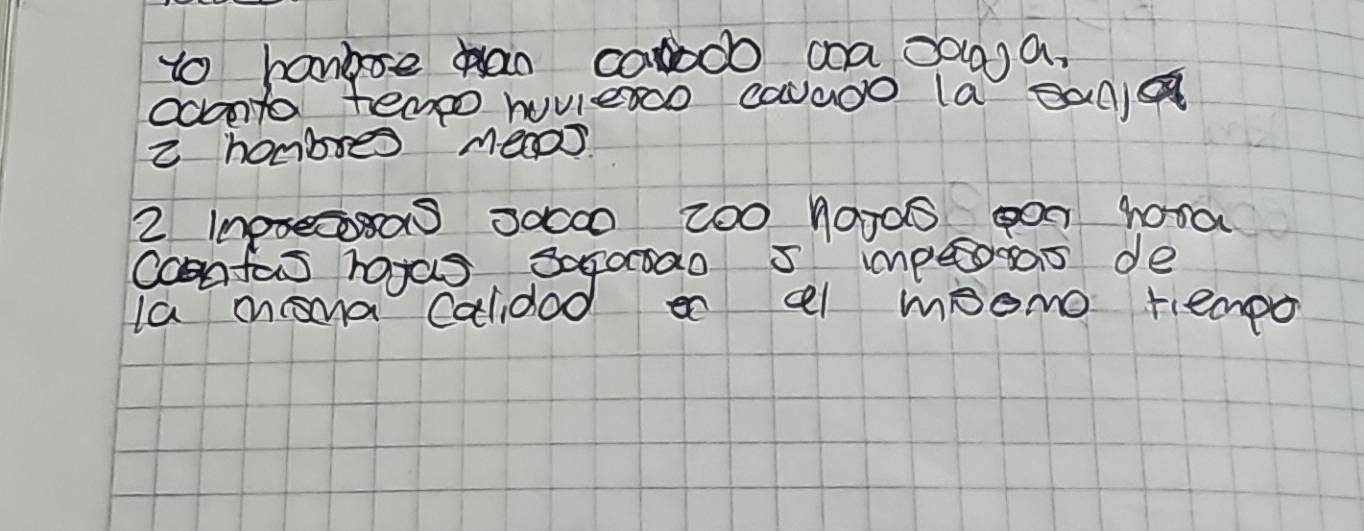 10 hombre han cavado una sanja.
cuanto tiempo huvieron cavado la sanja
2 hombres menos.
2 inpresoras sacan 200 hojas por hora
cuantas hojas sacaran 5 impesoras de
la misma calidad en el mismo tiempo